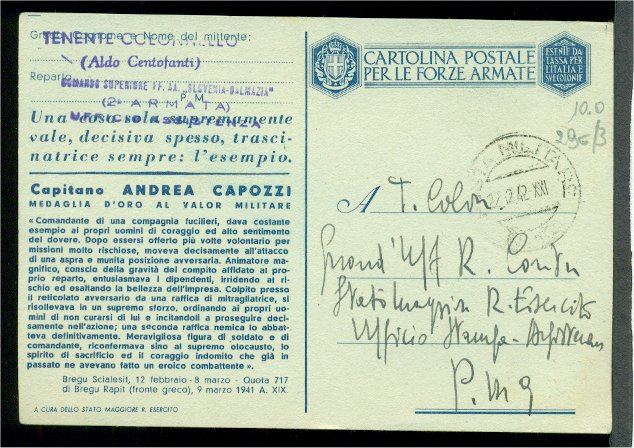 Grado, Cognome e Nome del mittente:
TENENTE COLONNELLO
(Aldo Centofanti)
Reparto
COMANDO SUPERIORE FF. AA. "SLOVENIA-DALMAZIA"
P. M.
(2ª ARMATA)
UFFICIO ASSISTENZA
Una cosa sola supremamente
vale, decisiva spesso, trasci-
natrice sempre: l'esempio.
Capitano ANDREA CAPOZZI
MEDAGLIA D'ORO AL VALOR MILITARE
« Comandante di una compagnia fucilieri, dava costante
esempio ai propri uomini di coraggio ed alto sentimento
del dovere. Dopo essersi offerto più volte volontario per
missioni molto rischiose, moveva decisamente all'attacco
di una aspra e munita posizione avversaria. Animatore ma-
gnifico, conscio della gravità del compito affidato al pro-
prio reparto, entusiasmava i dipendenti, irridendo al ri-
schio ed esaltando la bellezza dell'impresa. Colpito presso
il reticolato avversario da una raffica di mitragliatrice, si
risollevava in un supremo sforzo, ordinando ai propri uo-
mini di non curarsi di lui e incitandoli a proseguire deci-
samente nell'azione; una seconda raffica nemica lo abbat-
teva definitivamente. Meravigliosa figura di soldato e di
comandante, riconfermava sino al supremo olocausto, lo
spirito di sacrificio ed il coraggio indomito che già in
passato ne avevano fatto un eroico combattente ».
Bregu Scialesit, 12 febbraio - 8 marzo - Quota 717
di Bregu Rapit (fronte greco), 9 marzo 1941 A. XIX.
A CURA DELLO STATO MAGGIORE R. ESERCITO
CARTOLINA POSTALE
PER LE FORZE ARMATE
ESENTE DA
TASSA PER
L'ITALIA E
SUE COLONIE
10.0
296/3
POSTA MILITARE
22.12.42 XXI
A T. Colon
Grand'Uff R.
Stato Maggiore R. Esercito
Ufficio Stampa
P. M 9